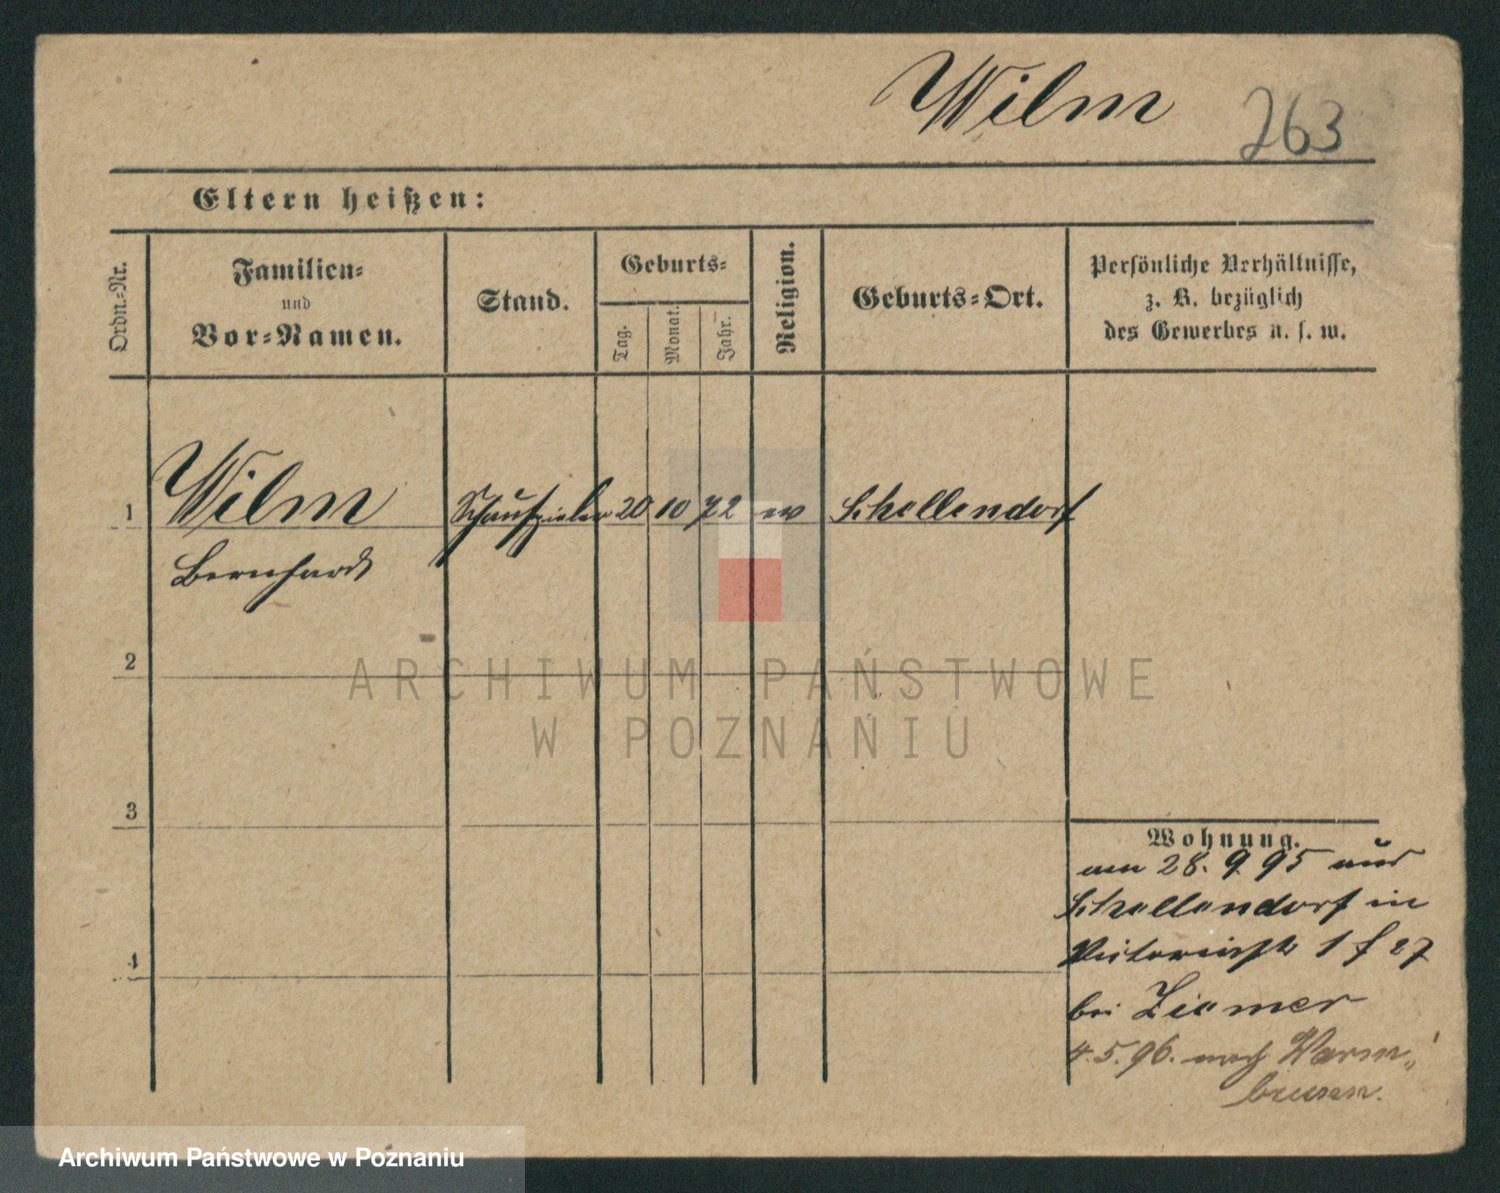 Wilm 263
Eltern heißen:
Ordn.-Nr.
Familien-
und
Vor-Namen.
Stand.
Geburts-
Tag.
Monat.
Jahr.
Religion.
Geburts-Ort.
Persönliche Verhältnisse,
z. B. bezüglich
des Gewerbes u. s. w.
1 Wilm Schauspieler 20 10 72 ev Schellendorf
Bernhard
2
ARCHIWUM PAŃSTWOWE
W POZNANIU
3
Wohnung.
am 28. 9. 95 aus
Schellendorf in
1 f 27
bei Ziemer
4
4. 5. 96. nach Warm„
brunn.
Archiwum Państwowe w Poznaniu